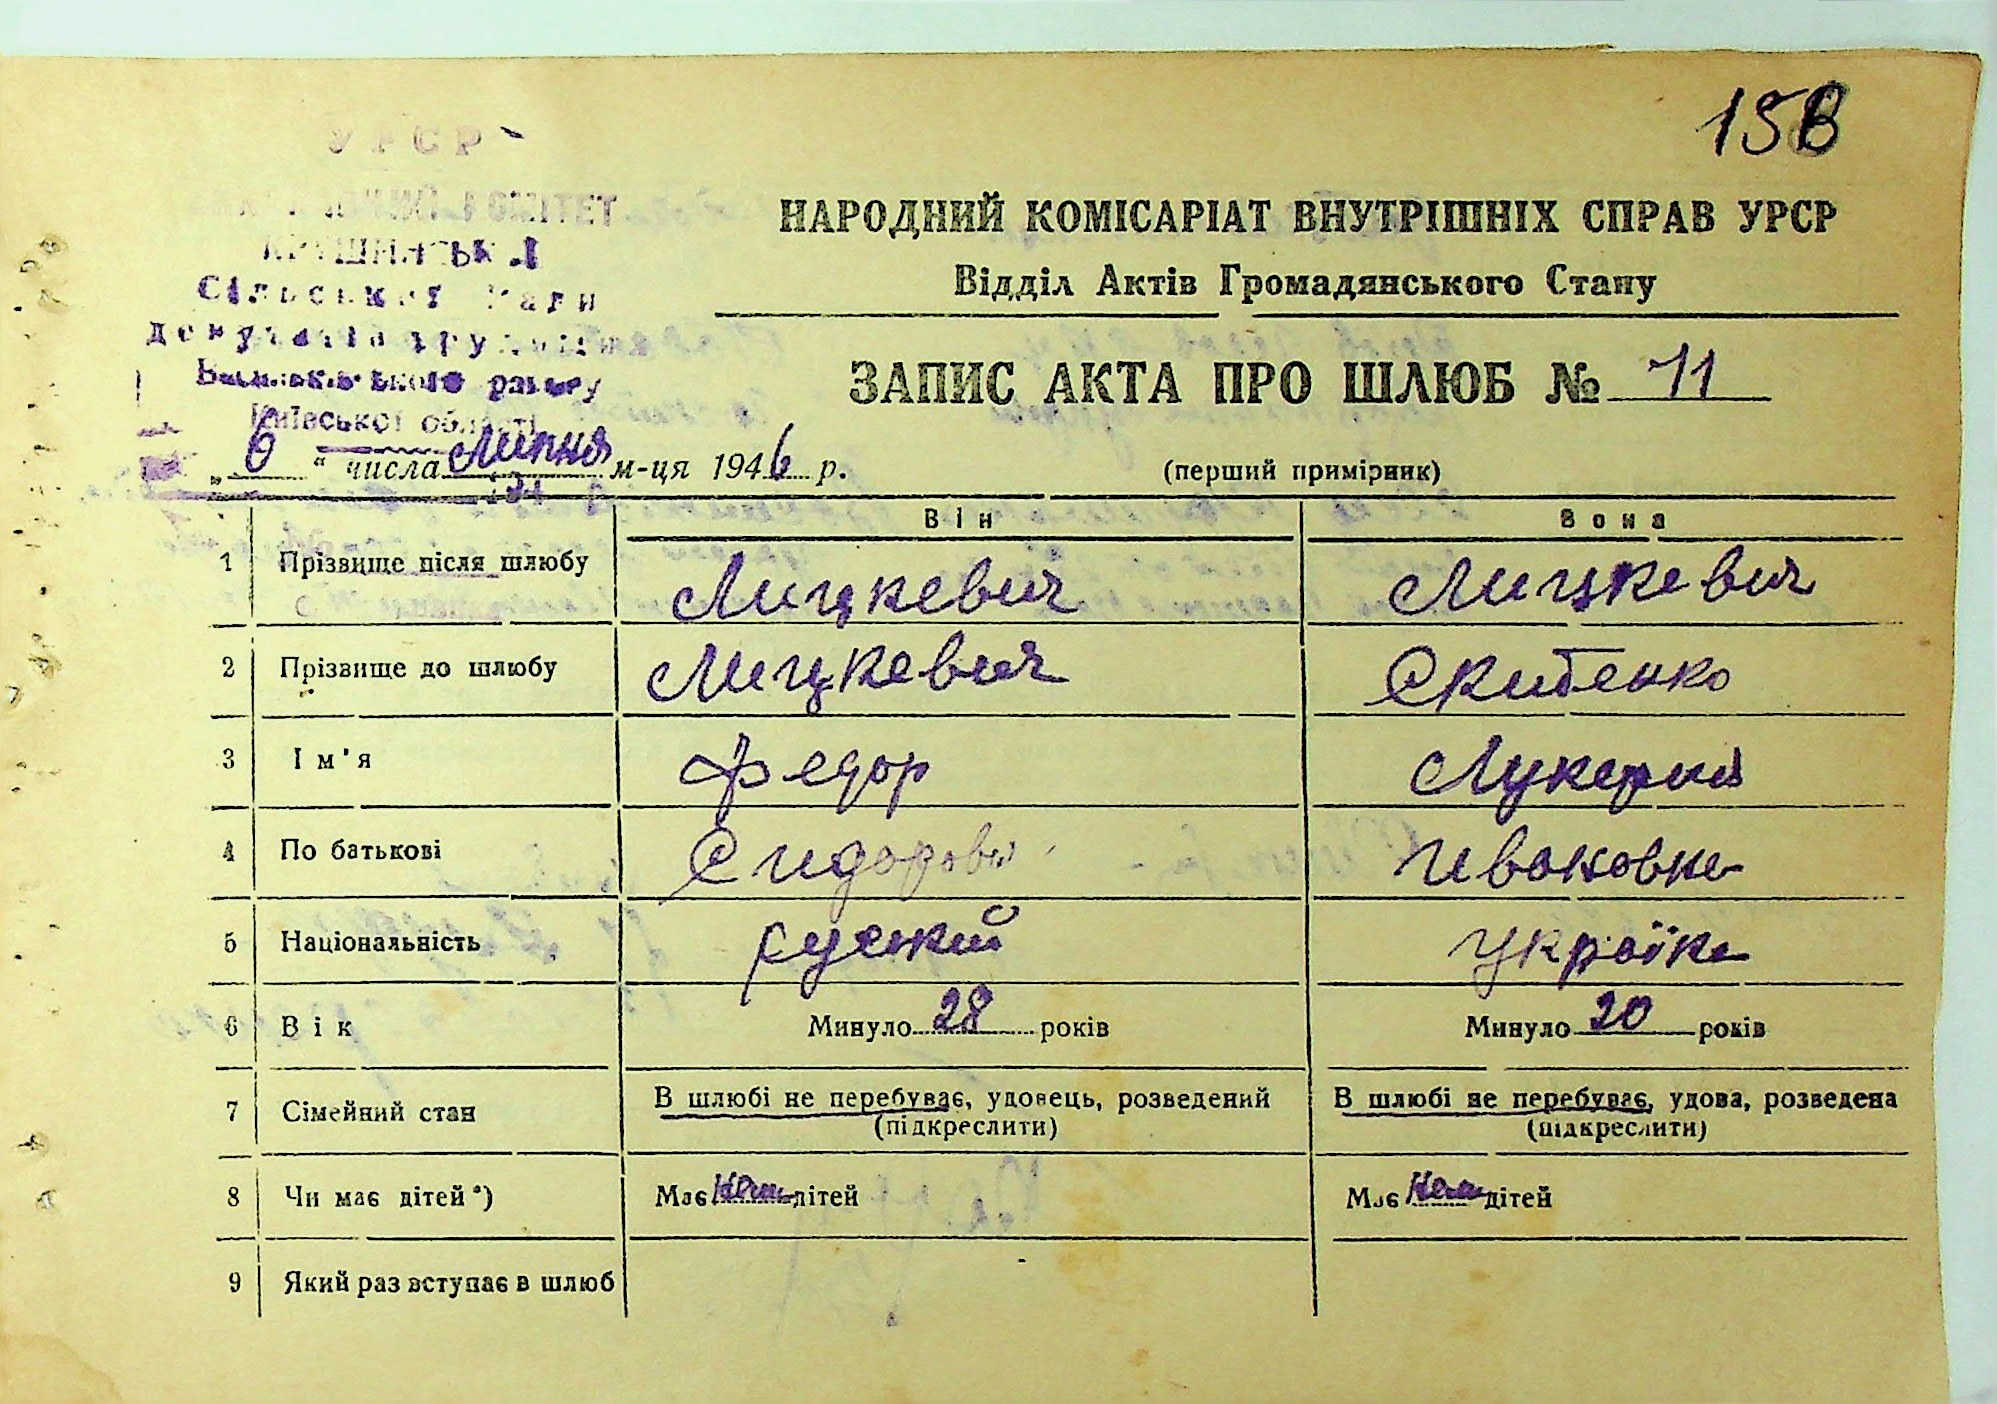 158
УРСР
КОМІТЕТ
Сільської Ради
депутатів трудящих
Васильківського району
Київської області
НАРОДНИЙ КОМІСАРІАТ ВНУТРІШНІХ СПРАВ УРСР
Відділ Актів Громадянського Стану
ЗАПИС АКТА ПРО ШЛЮБ № 11
„6“ числа Липня м-ця 1946 р. (перший примірник)
Він Вона
1 Прізвище після шлюбу Лицкевич Лицкевич
2 Прізвище до шлюбу Лицкевич Скибенко
3 Ім'я Федор Лукерия
4 По батькові Сидорови Ивановна
5 Національність руский українка
6 Вік Минуло 28 років Минуло 20 років
7 Сімейний стан В шлюбі не перебуває, удовець, розведений В шлюбі не перебуває, удова, розведена
(підкреслити) (підкреслити)
8 Чи має дітей*) Має дітей Має дітей
9 Який раз вступає в шлюб